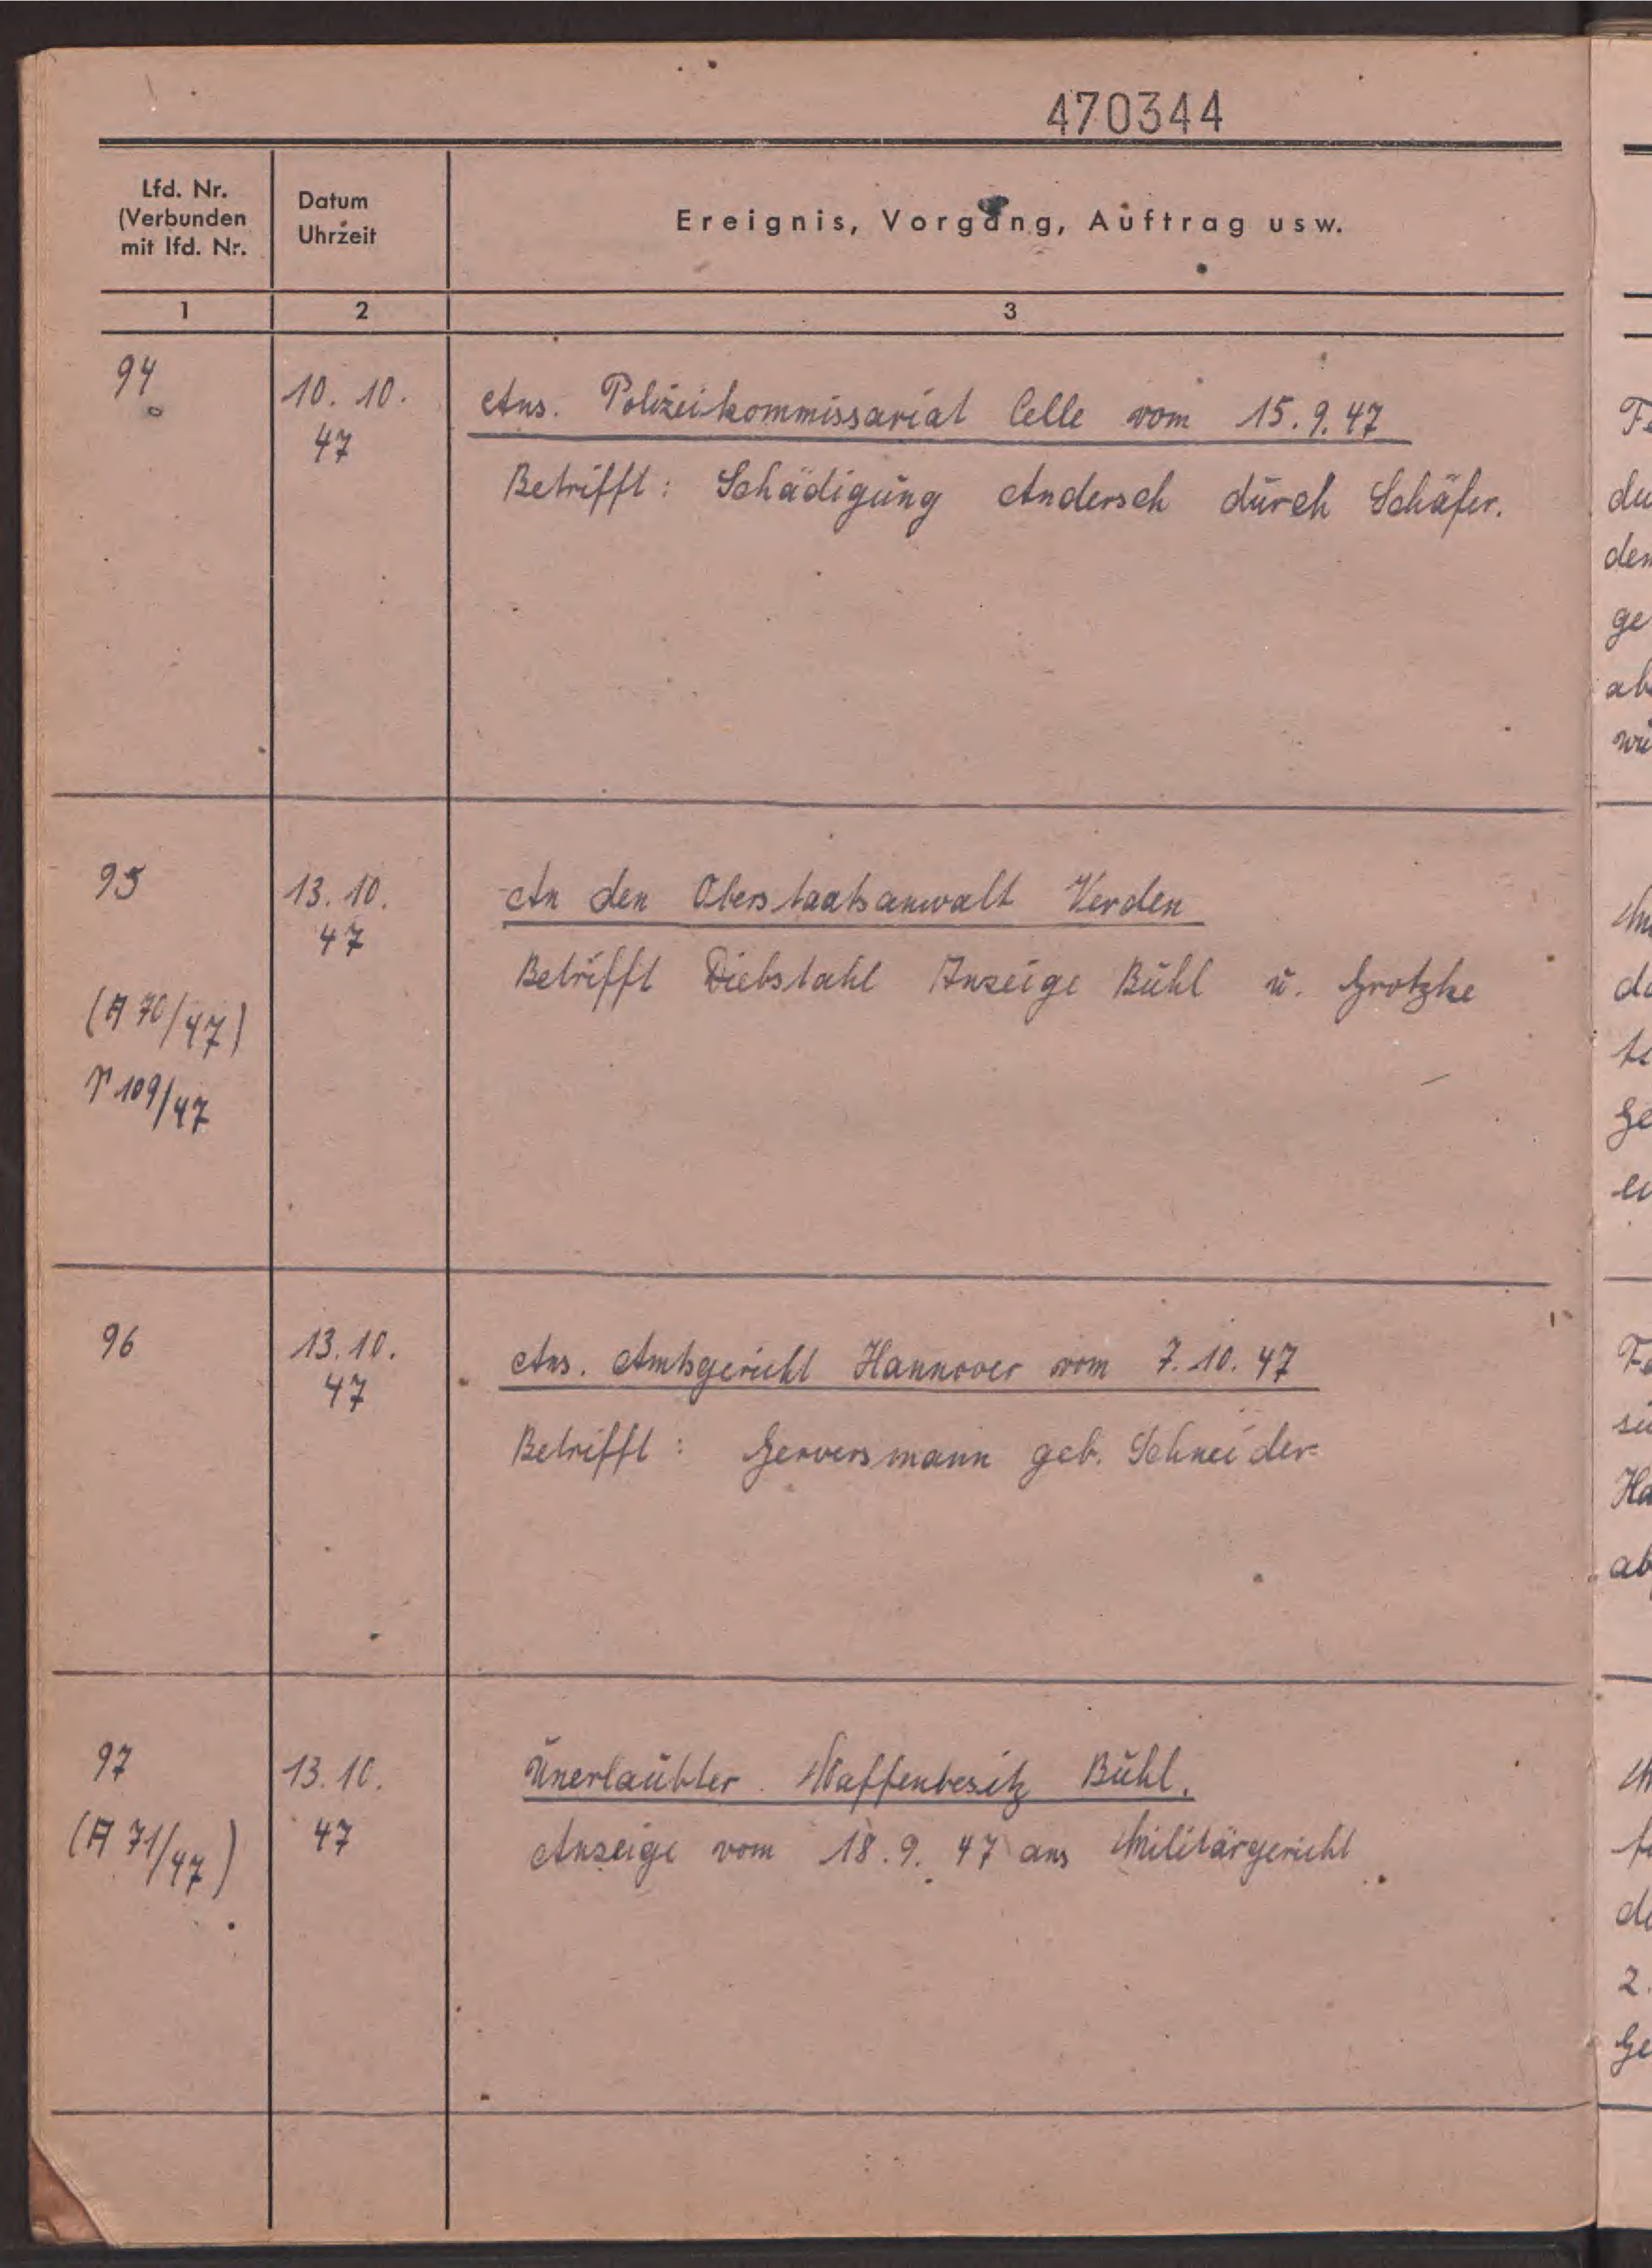 470344
Lfd. Nr.
(Verbunden
mit lfd. Nr.
Datum
Uhrzeit
Ereignis, Vorgang, Auftrag usw.
1
2
3
94
10. 10.
47
Ans. Polizeikommissariat Celle vom 15.9.47
Betrifft: Schädigung Andersch durch Schäfer.
95
13. 10.
47
An den Oberstaatsanwalt Verden
Betrifft Diebstahl Anzeige Bühl u. Grotzke
(A 70/47)
109/47
96
13. 10.
47
Ans. Amtsgericht Hannover vom 7. 10. 47
Betrifft: Gerversmann geb. Schneider
97
13. 10.
(A 71/47)
47
Unerlaubter Waffenbesitz Bühl.
Anzeige vom 18. 9. 47 ans Militärgericht